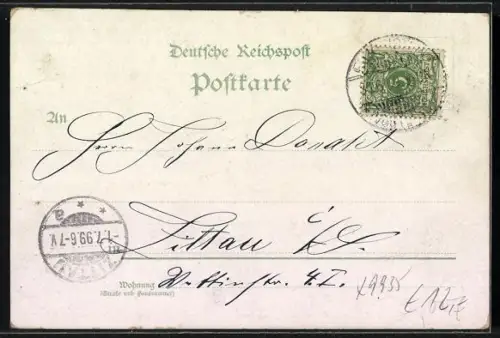 Deutsche Reichspost
Postkarte
An
Herrn Johann Donakt
Zittau i/S.
Wohnung
(Straße und Hausnummer)
Wettinstr. 4. I.
1.7.99.6-7V.